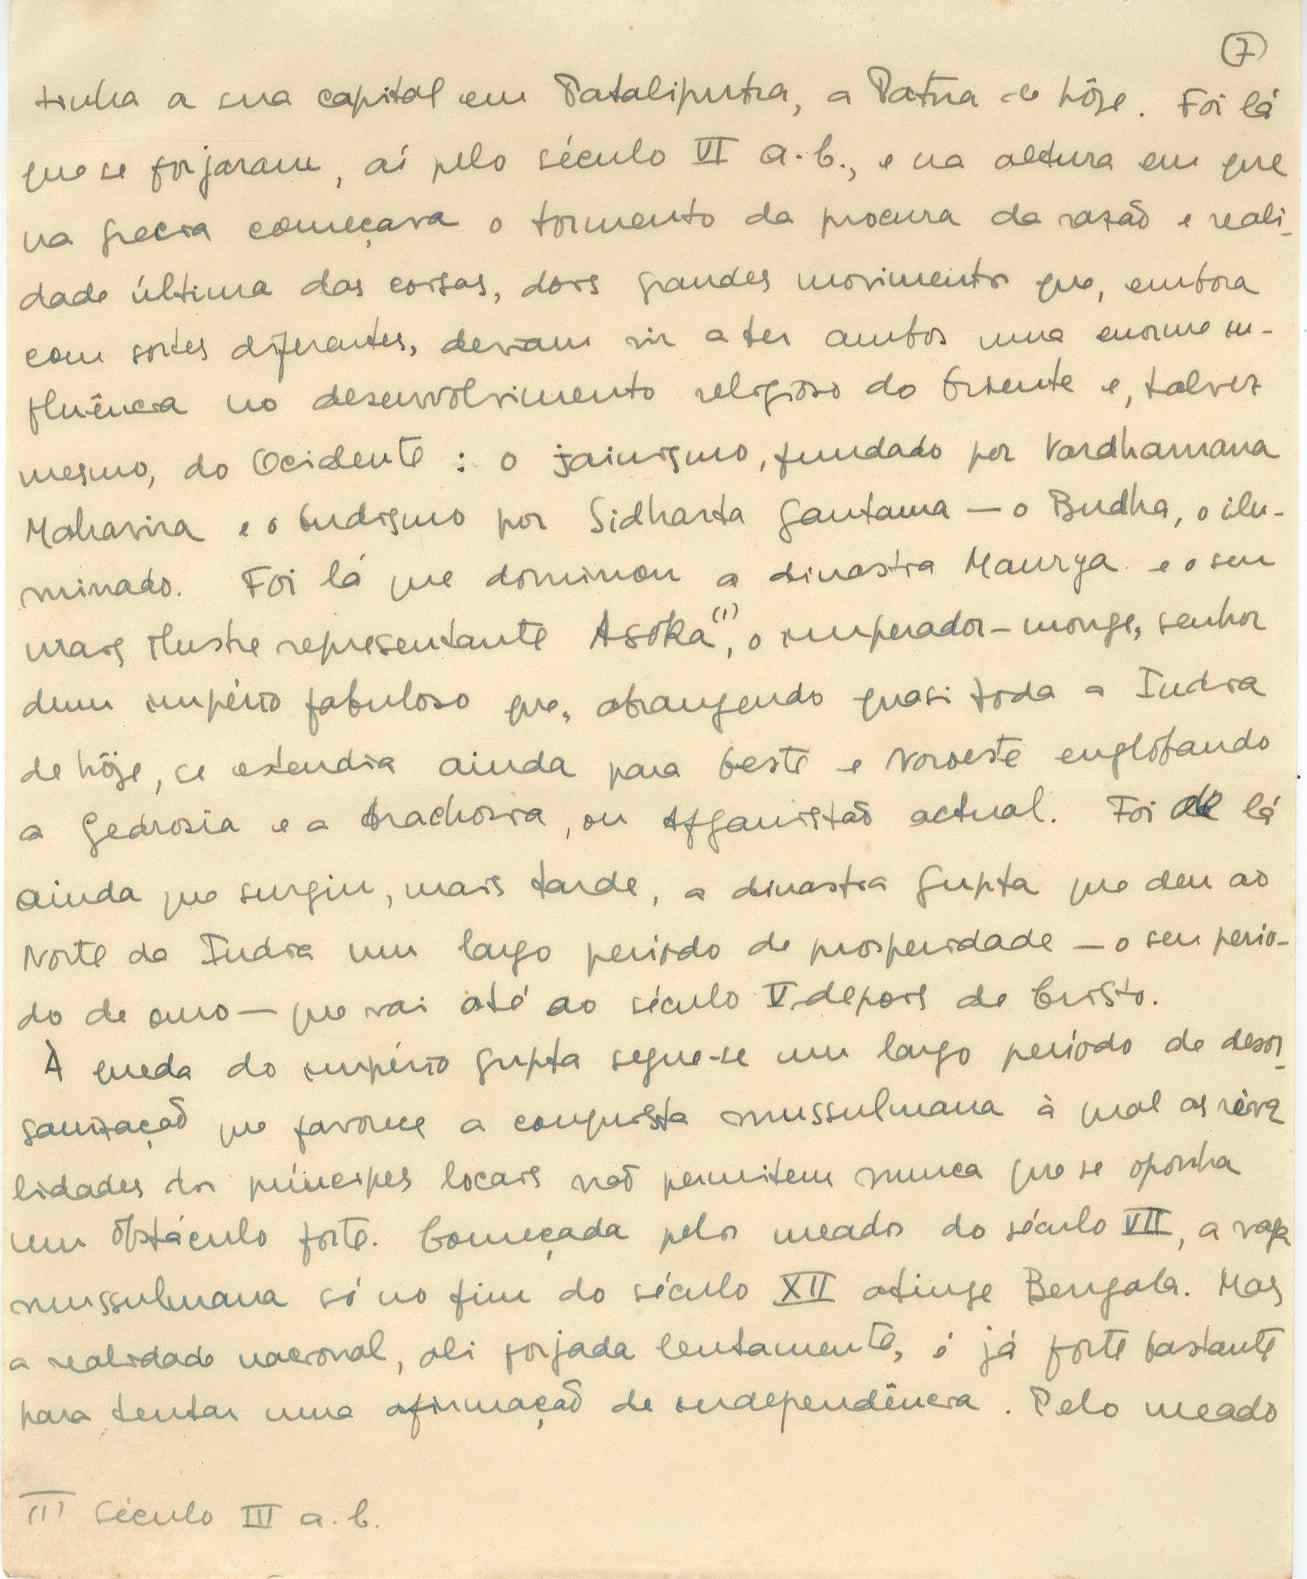 (7)
tinha a sua capital em Pataliputra, a Patna de hôje. Foi lá
que se forjaram, aí pelo século VI a.C., e na altura em que
na Grecia começava o tormento da procura da razão e reali-
dade última das coisas, dois grandes movimentos que, embora
com sortes diferentes, deviam vir a ter ambos uma enorme in-
fluência no desenvolvimento religioso do Oriente e, talvez
mesmo, do Ocidente : o jainismo, fundado por Vardhamana
Mahavira e o budismo por Sidharta Gautama — o Budha, o ilu-
minado. Foi lá que dominou a dinastia Maurya e o seu
mais ilustre representante Asoka(1), o imperador-monge, senhor
dum império fabuloso que, abrangendo quasi toda a India
de hôje, se estendia ainda para Oeste e Noroeste englobando
a Gedrosia e a Arachosia, ou Afganistão actual. Foi de lá
ainda que surgiu, mais tarde, a dinastia Gupta que deu ao
Norte da India um largo período de prosperidade — o seu perio-
do de ouro — que vai até ao século V depois de Cristo.
À queda do império Gupta segue-se um largo período de desor-
ganização que favorece a conquista mussulmana à qual as riva
lidades dos príncipes locais não permitem nunca que se oponha
um obstáculo forte. Começada pelos meados do século VII, a vaga
mussulmana só no fim do século XII atinge Bengala. Mas
a realidade nacional, ali forjada lentamente, é já forte bastante
para tentar uma afirmação de independência. Pelo meado
(1) Século III a.C.